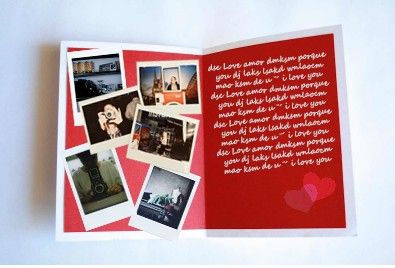 dsc Love amor dmksm porque
you dj laks lsakd wnlaocm
mao ksm de u ~ i love you
dsc Love amor dmksm porque
you dj laks lsakd wnlaocm
mao ksm de u ~ i love you
dsc Love amor dmksm porque
you dj laks lsakd wnlaocm
mao ksm de u ~ i love you
dsc Love amor dmksm porque
you dj laks lsakd wnlaocm
mao ksm de u ~ i love you